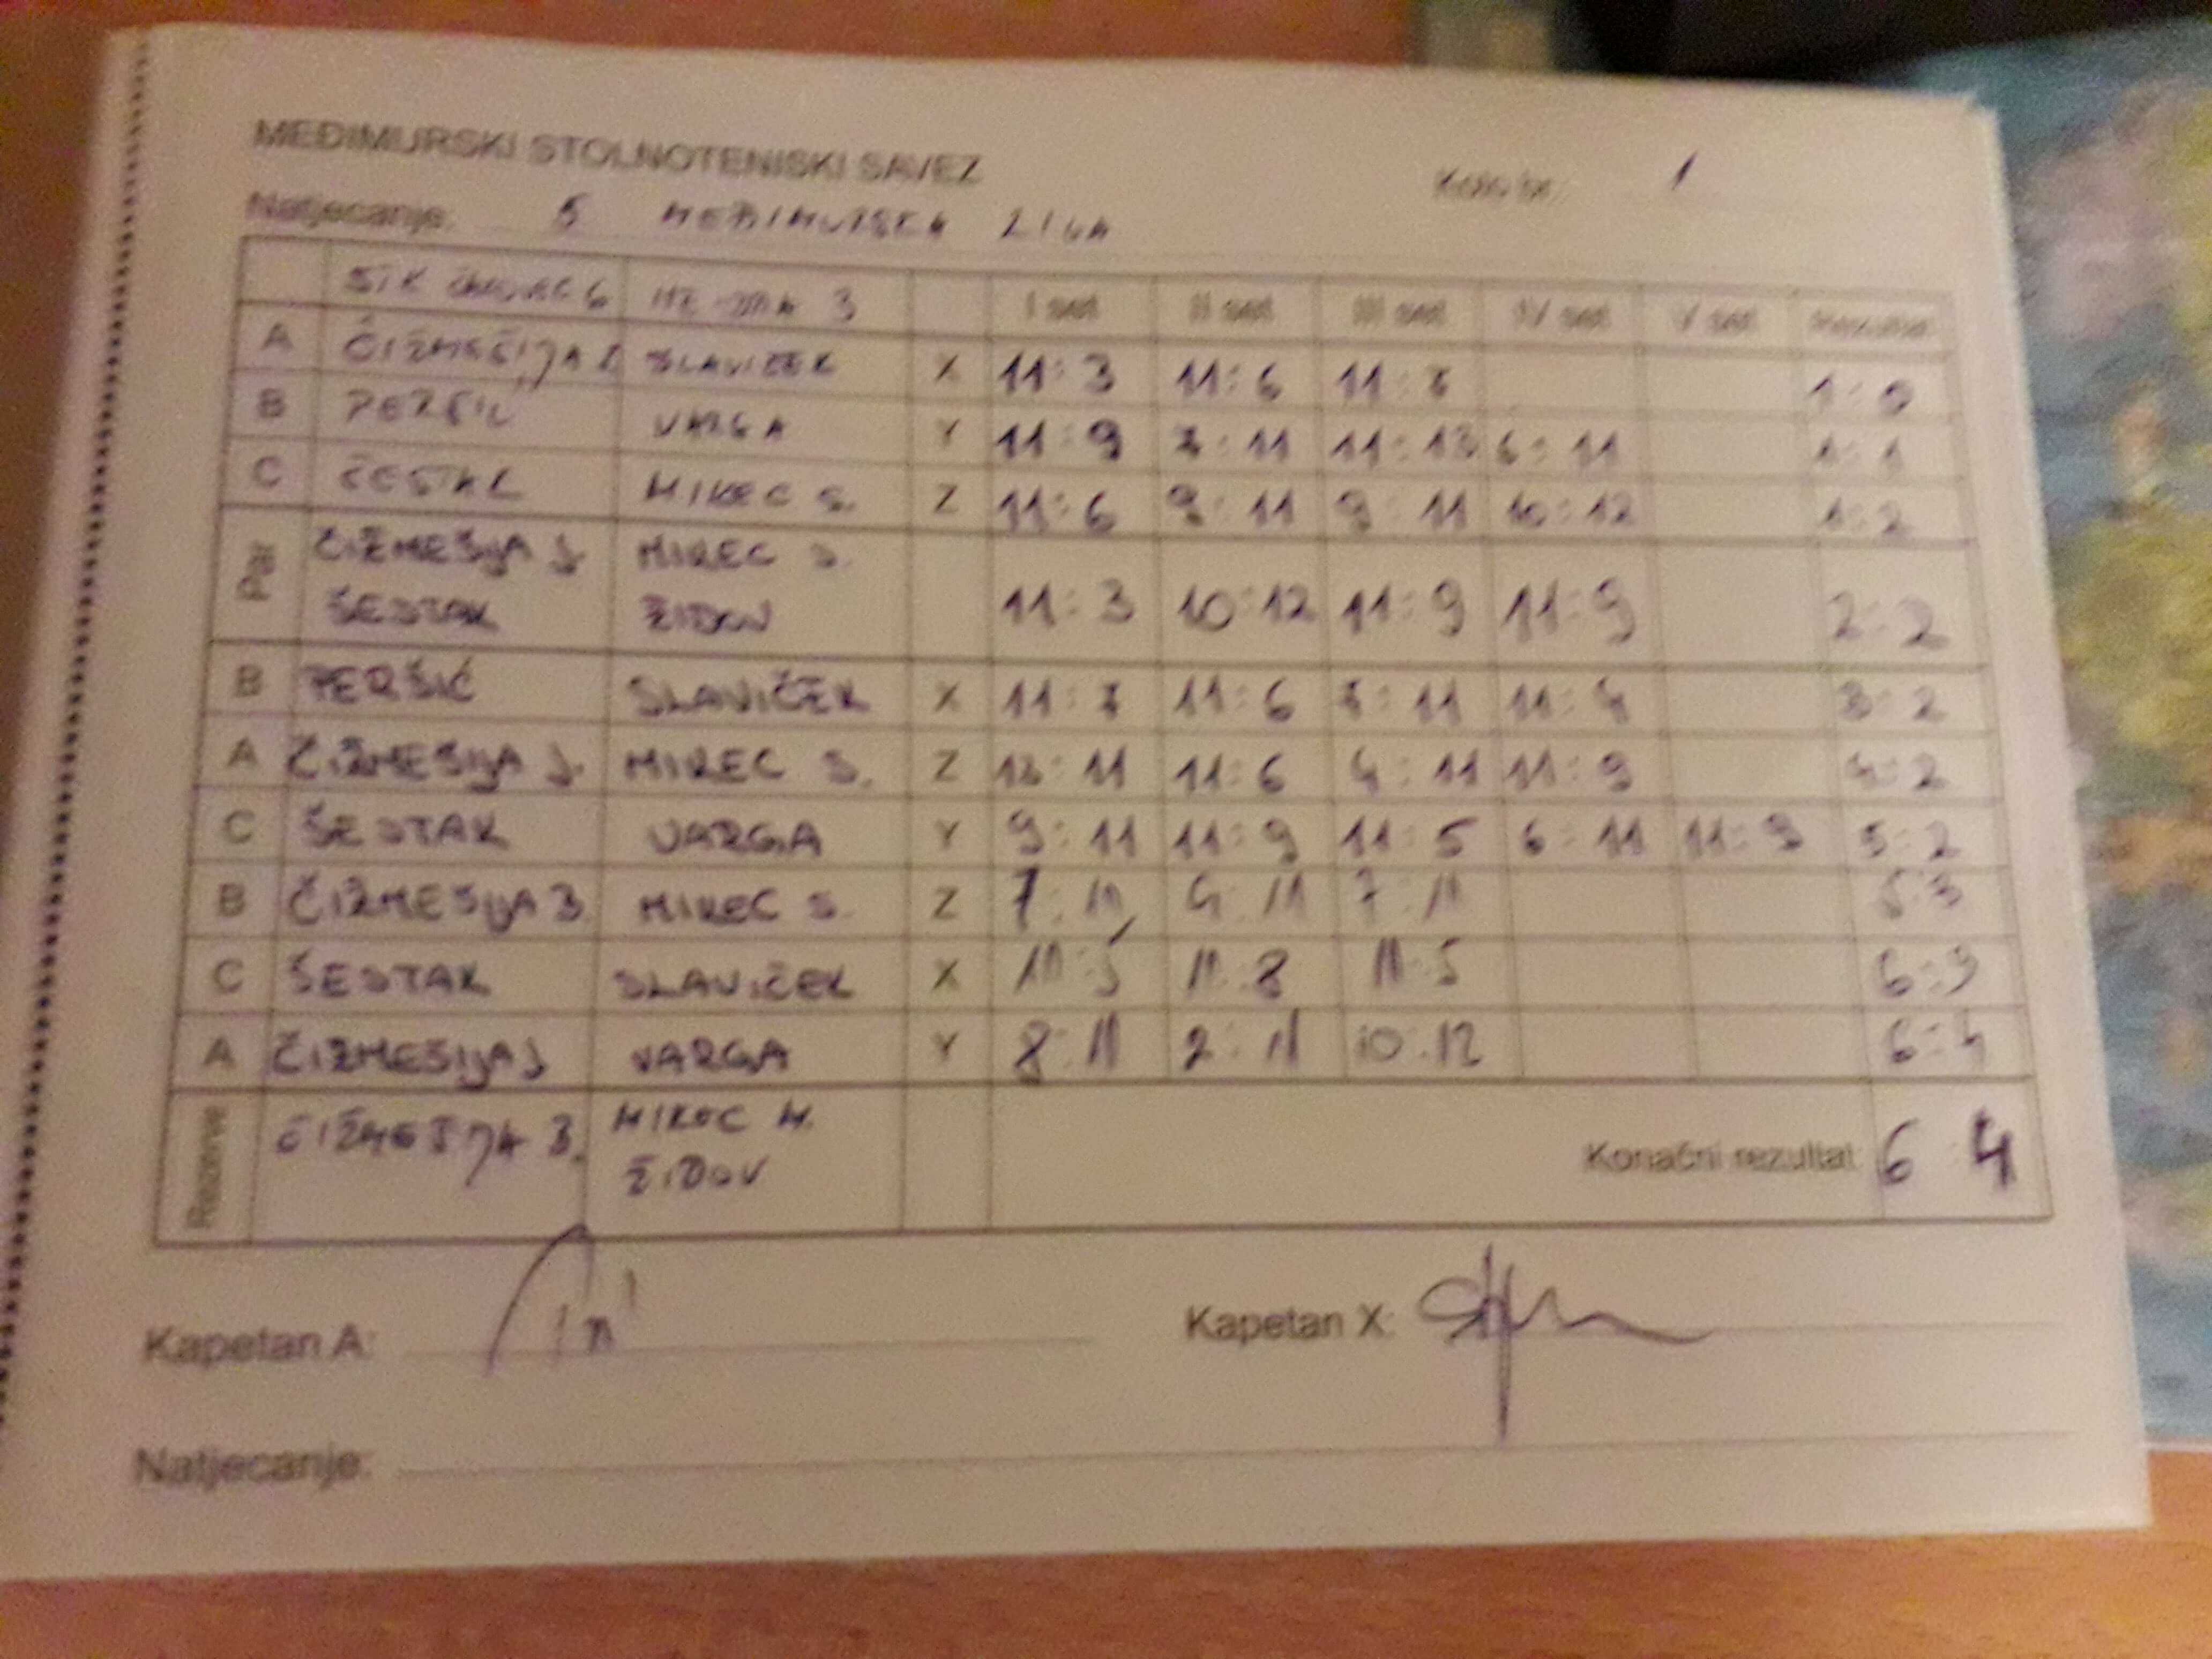 MEĐIMURSKI STOLNOTENISKI SAVEZ
Kolo br. 1
Natjecanje: 5 MEĐIMURSKA LIGA
STK ČAKOVEC 6 3 I set II set III set IV set V set Rezultat
A ČIŽMEŠIJA J. SLAVIČEK X 11:3 11:6 11:7 1:0
B PERŠIĆ VARGA Y 11:9 7:11 11:13 6:11 1:1
C ŠESTAK MIKEC S. Z 11:6 9:11 9:11 10:12 1:2
Par ČIŽMEŠIJA J. MIKEC S.
ŠESTAK ŽIDOV 11:3 10:12 11:9 11:9 2:2
B PERŠIĆ SLAVIČEK X 11:7 11:6 7:11 11:4 3:2
A ČIŽMEŠIJA J. MIKEC S. Z 13:11 11:6 4:11 11:9 4:2
C ŠESTAK VARGA Y 9:11 11:9 11:5 6:11 11:9 5:2
B ČIŽMEŠIJA B. MIKEC S. Z 7:11 4:11 7:11 5:3
C ŠESTAK SLAVIČEK X 11:5 11:8 11:5 6:3
A ČIŽMEŠIJA J VARGA Y 8:11 2:11 10:12 6:4
Rezerve ČIŽMEŠIJA B. MIKEC M.
ŽIDOV Konačni rezultat: 6 4
Kapetan A: Kapetan X:
Natjecanje: